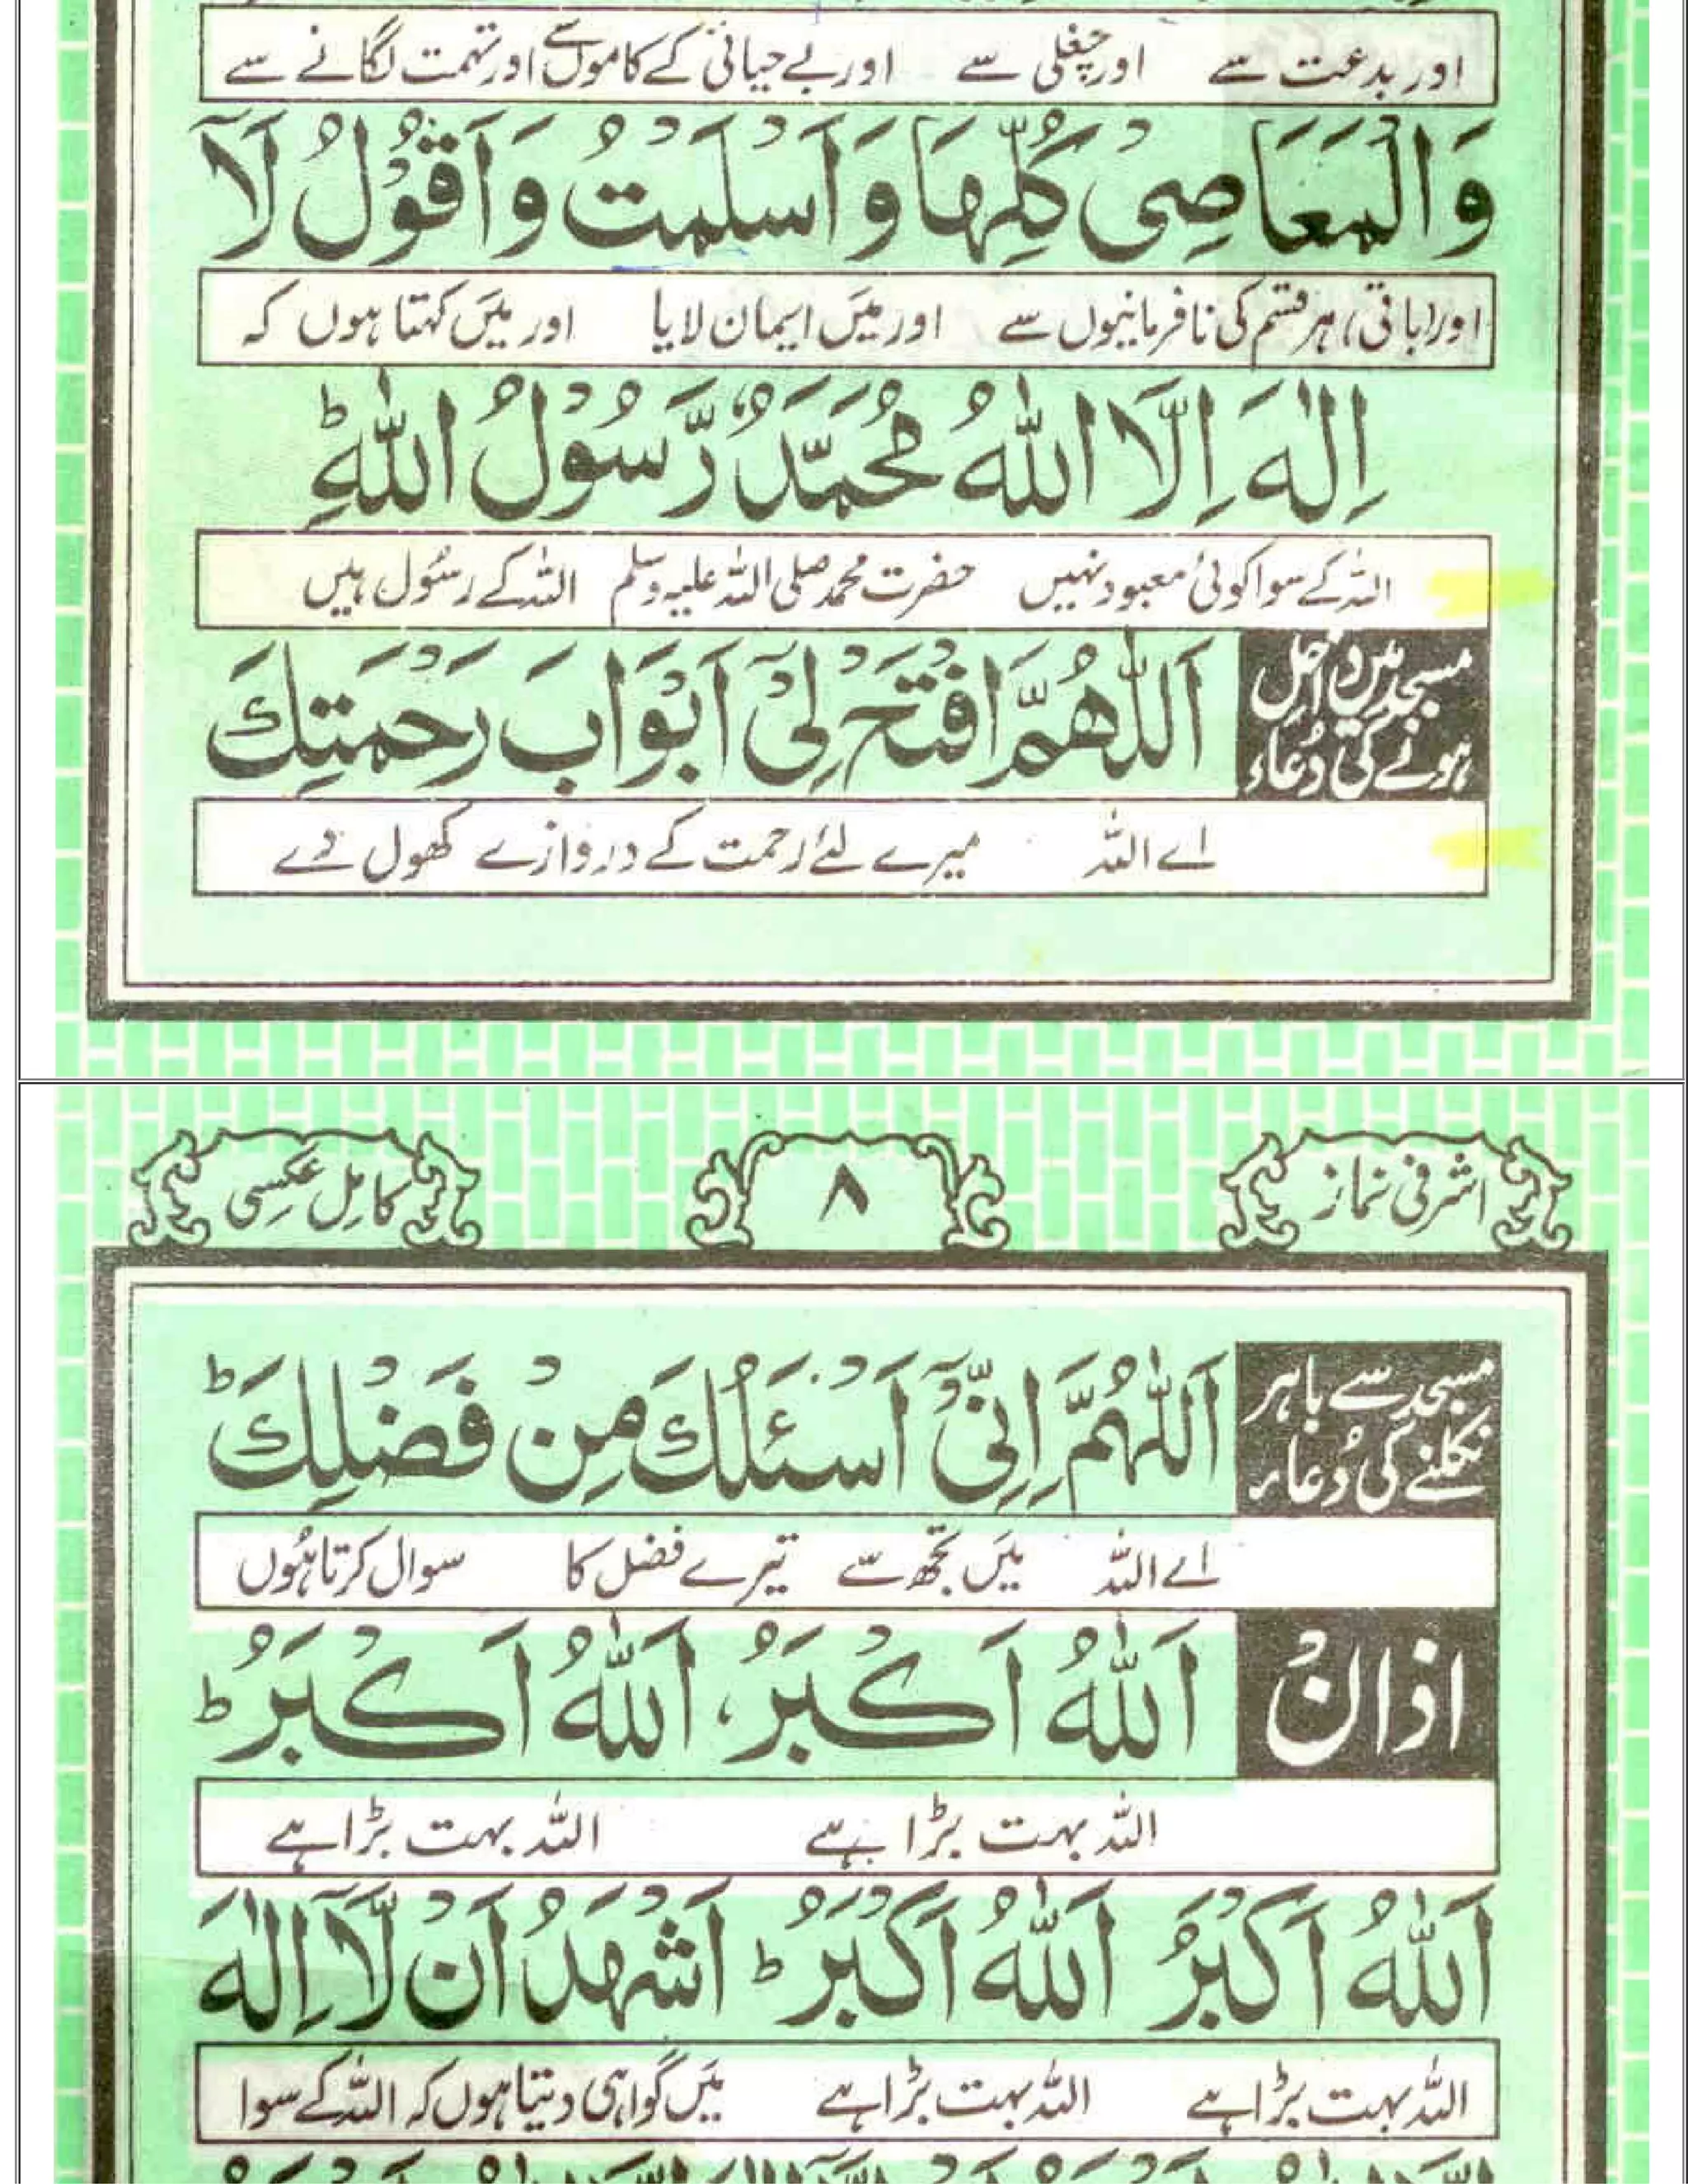 اور بدعت سے اور چغلی سے اور بے حیائی کے کاموں سے اور تہمت لگانے سے
وَالْمَعَاصِیْ کُلِّهَا وَ اَسْلَمْتُ وَ اَقُوْلُ لَآ
اور (باقی) ہر قسم کی نافرمانیوں سے اور میَں ایمان لایا اور میَں کہتا ہوں کہ
اِلٰهَ اِلَّا اللّٰهُ مُحَمَّدٌ رَّسُوْلُ اللّٰهِؕ
اللہ کے سوا کوئی معبود نہیں حضرت محمد صلی اللہ علیہ وسلم اللہ کے رسُول ہیں
مسجد میں داخل
ہونے کی دُعاء
اَللّٰهُمَّ افْتَحْ لِیْٓ اَبْوَابَ رَحْمَتِكَ
اے اللہ میرے لئے رحمت کے دروازے کھول دے
اشرفی نماز
۸
کامِل عکسِی
مسجد سے باہر
نکلنے کی دُعاء
اَللّٰهُمَّ اِنِّیْٓ اَسْئَلُكَ مِنْ فَضْلِكَؕ
اے اللہ میَں تجھ سے تیرے فضل کا سوال کرتا ہُوں
اذانْ
اَللّٰهُ اَکْبَرُ، اَللّٰهُ اَکْبَرُؕ
اللہ بہت بڑا ہے اللہ بہت بڑا ہے
اَللّٰهُ اَکْبَرُ اَللّٰهُ اَکْبَرُؕ اَشْهَدُ اَنْ لَّآ اِلٰهَ
اللہ بہت بڑا ہے اللہ بہت بڑا ہے میَں گواہی دیتا ہوں کہ اللہ کے سوا